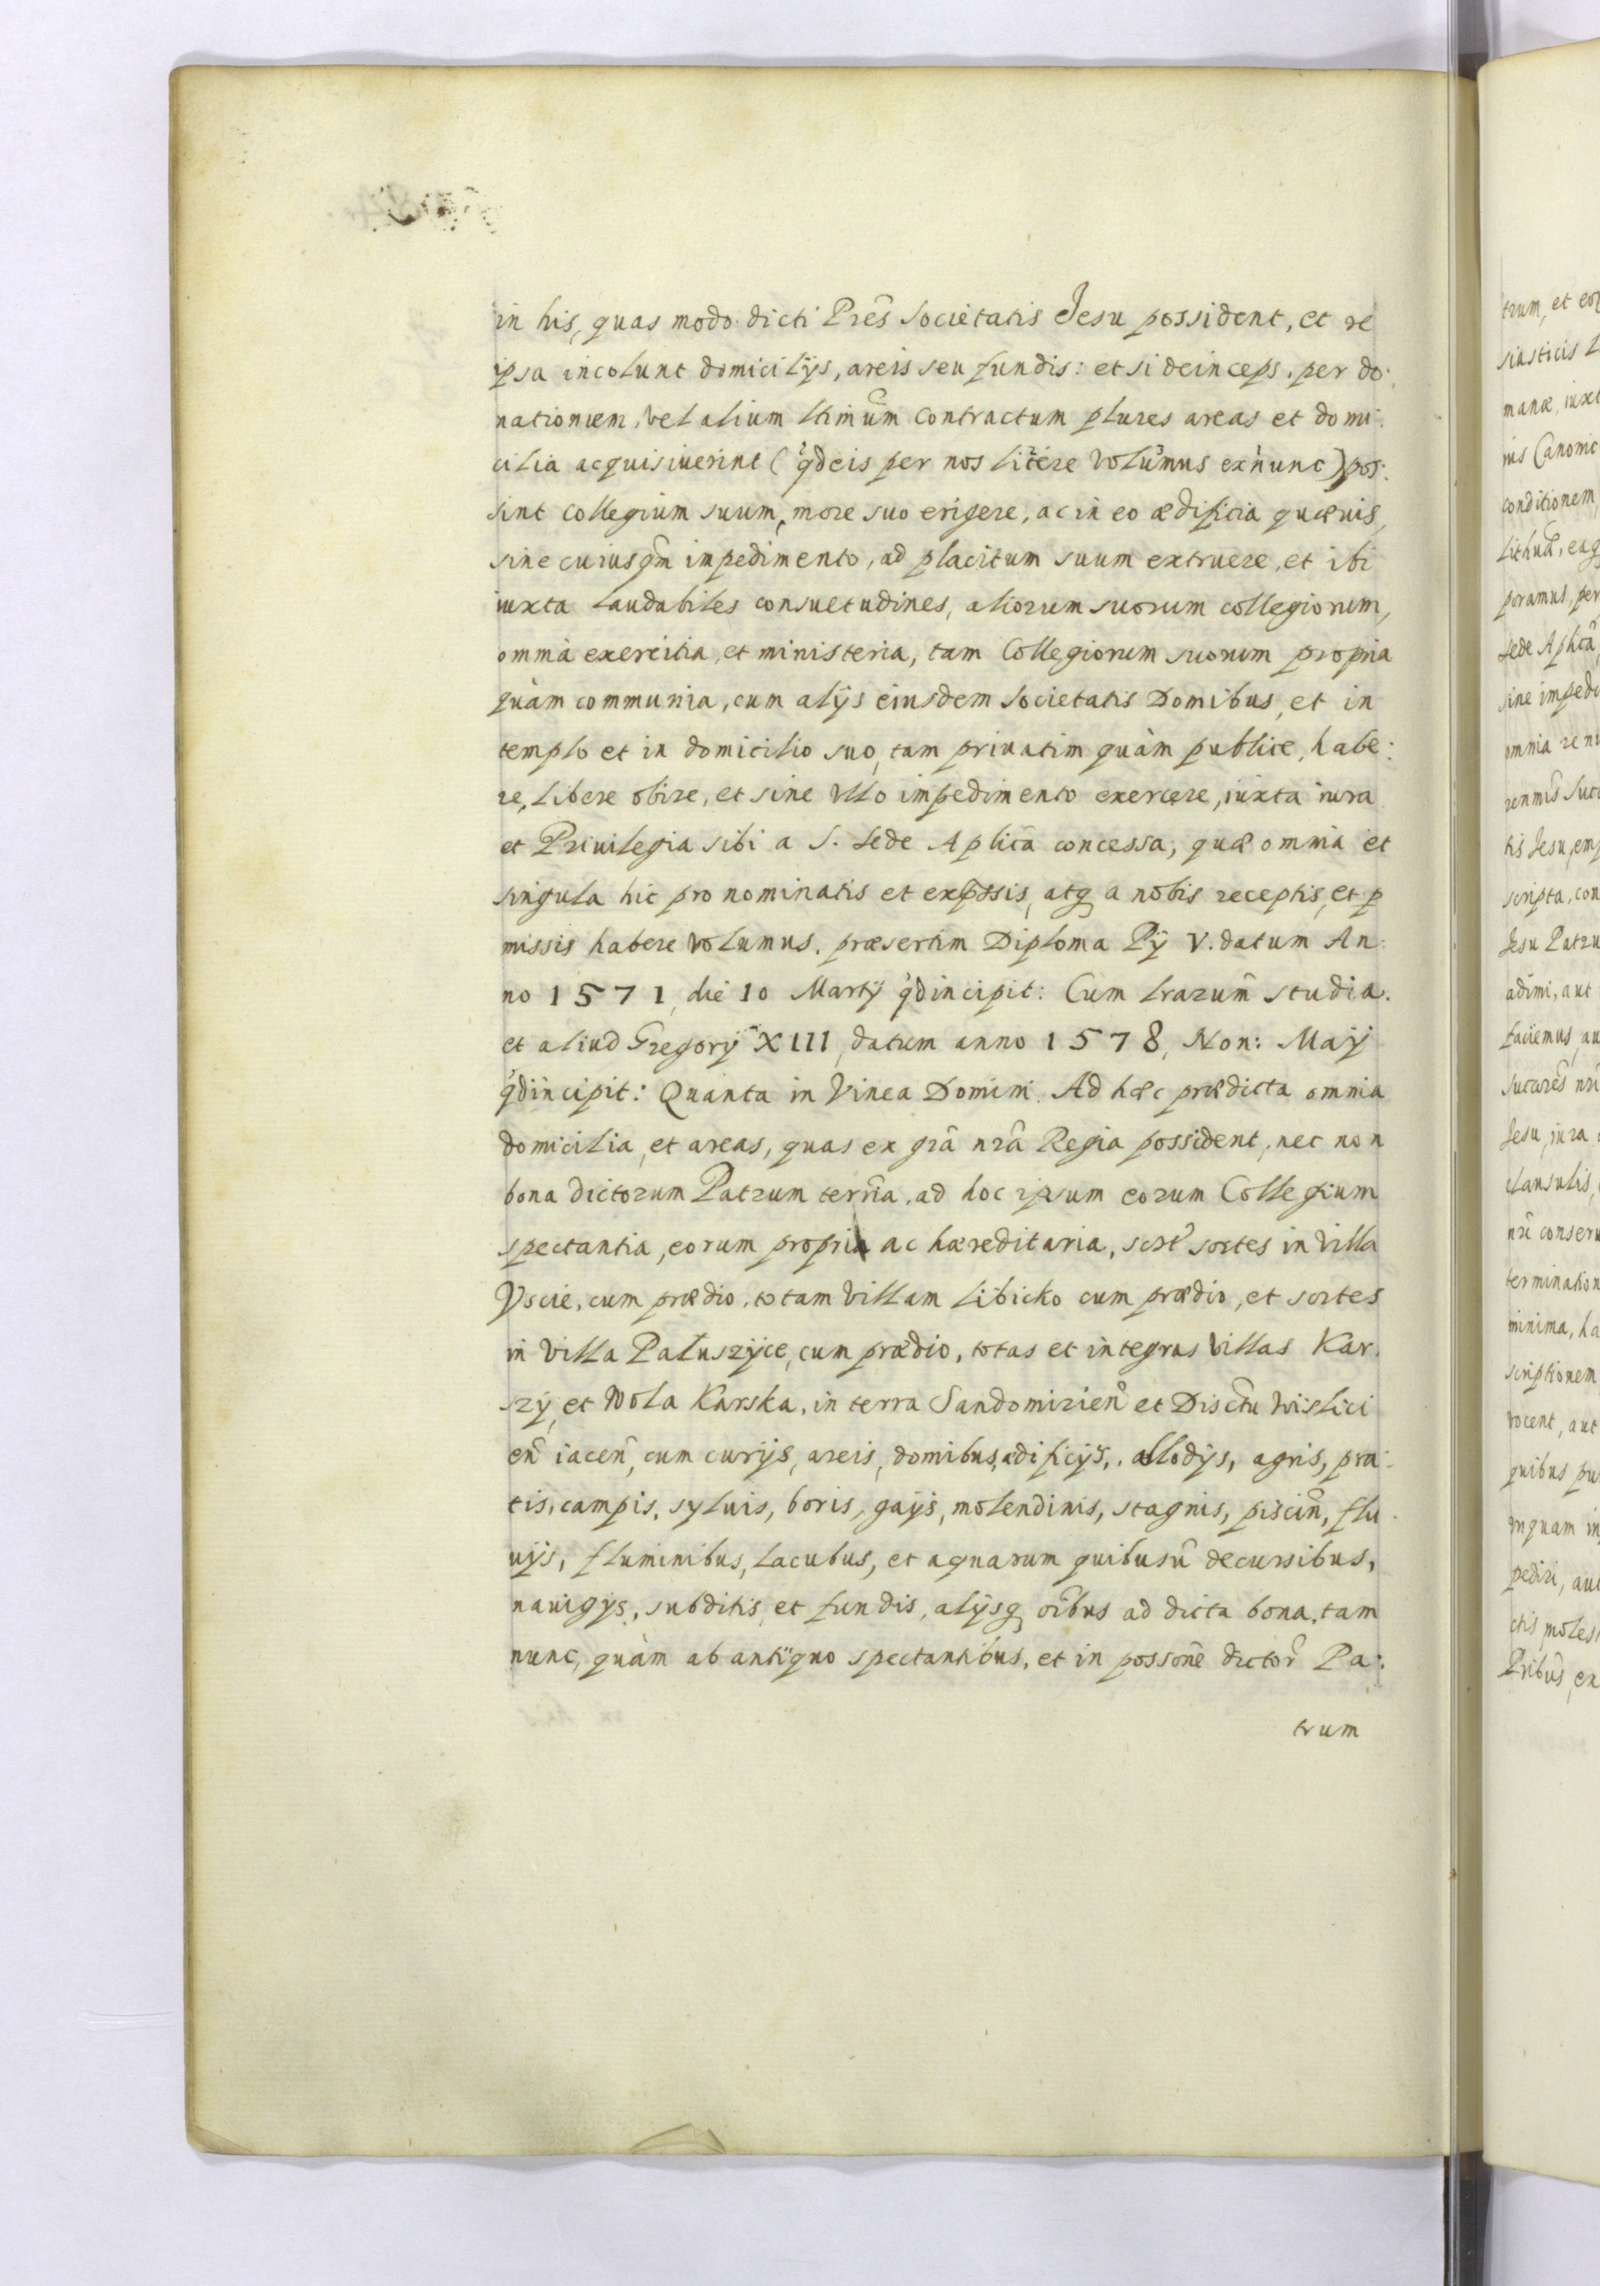 in his, quas modo dicti Pres̃ Societatis Jesu possident, et re
ipsa incolunt domicilijs, areis seu fundis: et si deinceps, per do:
nationem, vel alium ltimũm contractum plures areas et domi:
cilia acquisiuerint ( qd̃ eis per nos licere volumus ex nunc ) pos:
sint collegium suum, more suo erigere, ac in eo ædificia quæuis,
sine cuiusqm̃ impedimento, ad placitum suum extruere, et ibi
iuxta laudabiles consuetudines, aliorum suorum collegiorum,
omnia exercitia, et ministeria, tam Collegiorum suorum propria
quàm communia, cum alijs eiusdem Societatis Domibus, et in
templo et in domicilio suo, tam priuatim quàm publice, habe:
re, libere obire, et sine Vllo impedimento exercere, iuxta iura
et Priuilegia sibi a S. Sede Aplicã concessa, quæ omnia et
singula hic pro nominatis et exp̃ssis, atq a nobis receptis, et p
missis habere volumus. præsertim Diploma Pij V. datum An:
no 1571, die 10 Martij qd̃ incipit: Cum lrarum̃ studia.
et aliud Gregorij XIII, datum anno 1578, Non: Maij
qd̃ incipit: Quanta in Vinea Domini. Ad hæc prædicta omnia
domicilia, et areas, quas ex grã nrã Regia possident, nec non
bona dictorum Patrum terrĩa, ad hoc ipsum eorum Collegium
spectantia, eorum propria ac hæreditaria, sctt̃ sortes in Villa
Vscie, cum prædio, totam Villam Libicko cum prædio, et sortes
in Villa Pałuszyce, cum prædio, totas et integras Villas Kar.
szy, et Wola Karska, in terra Sandomirien̄ et Disctũ Wislici
en̄ iacen̄, cum curijs, areis, domibus, ædificijs, allodijs, agris, pra:
tis, campis, syluis, boris, gajis, molendinis, stagnis, piscin̄, flu
uijs, fluminibus, lacubus, et aquarum quibusũ decursibus,
nauigijs, subditis, et fundis, alijsq oĩbus ad dicta bona, tam
nunc, quàm ab antiquo spectantibus, et in possonẽ dictor̃ Pa:
trum